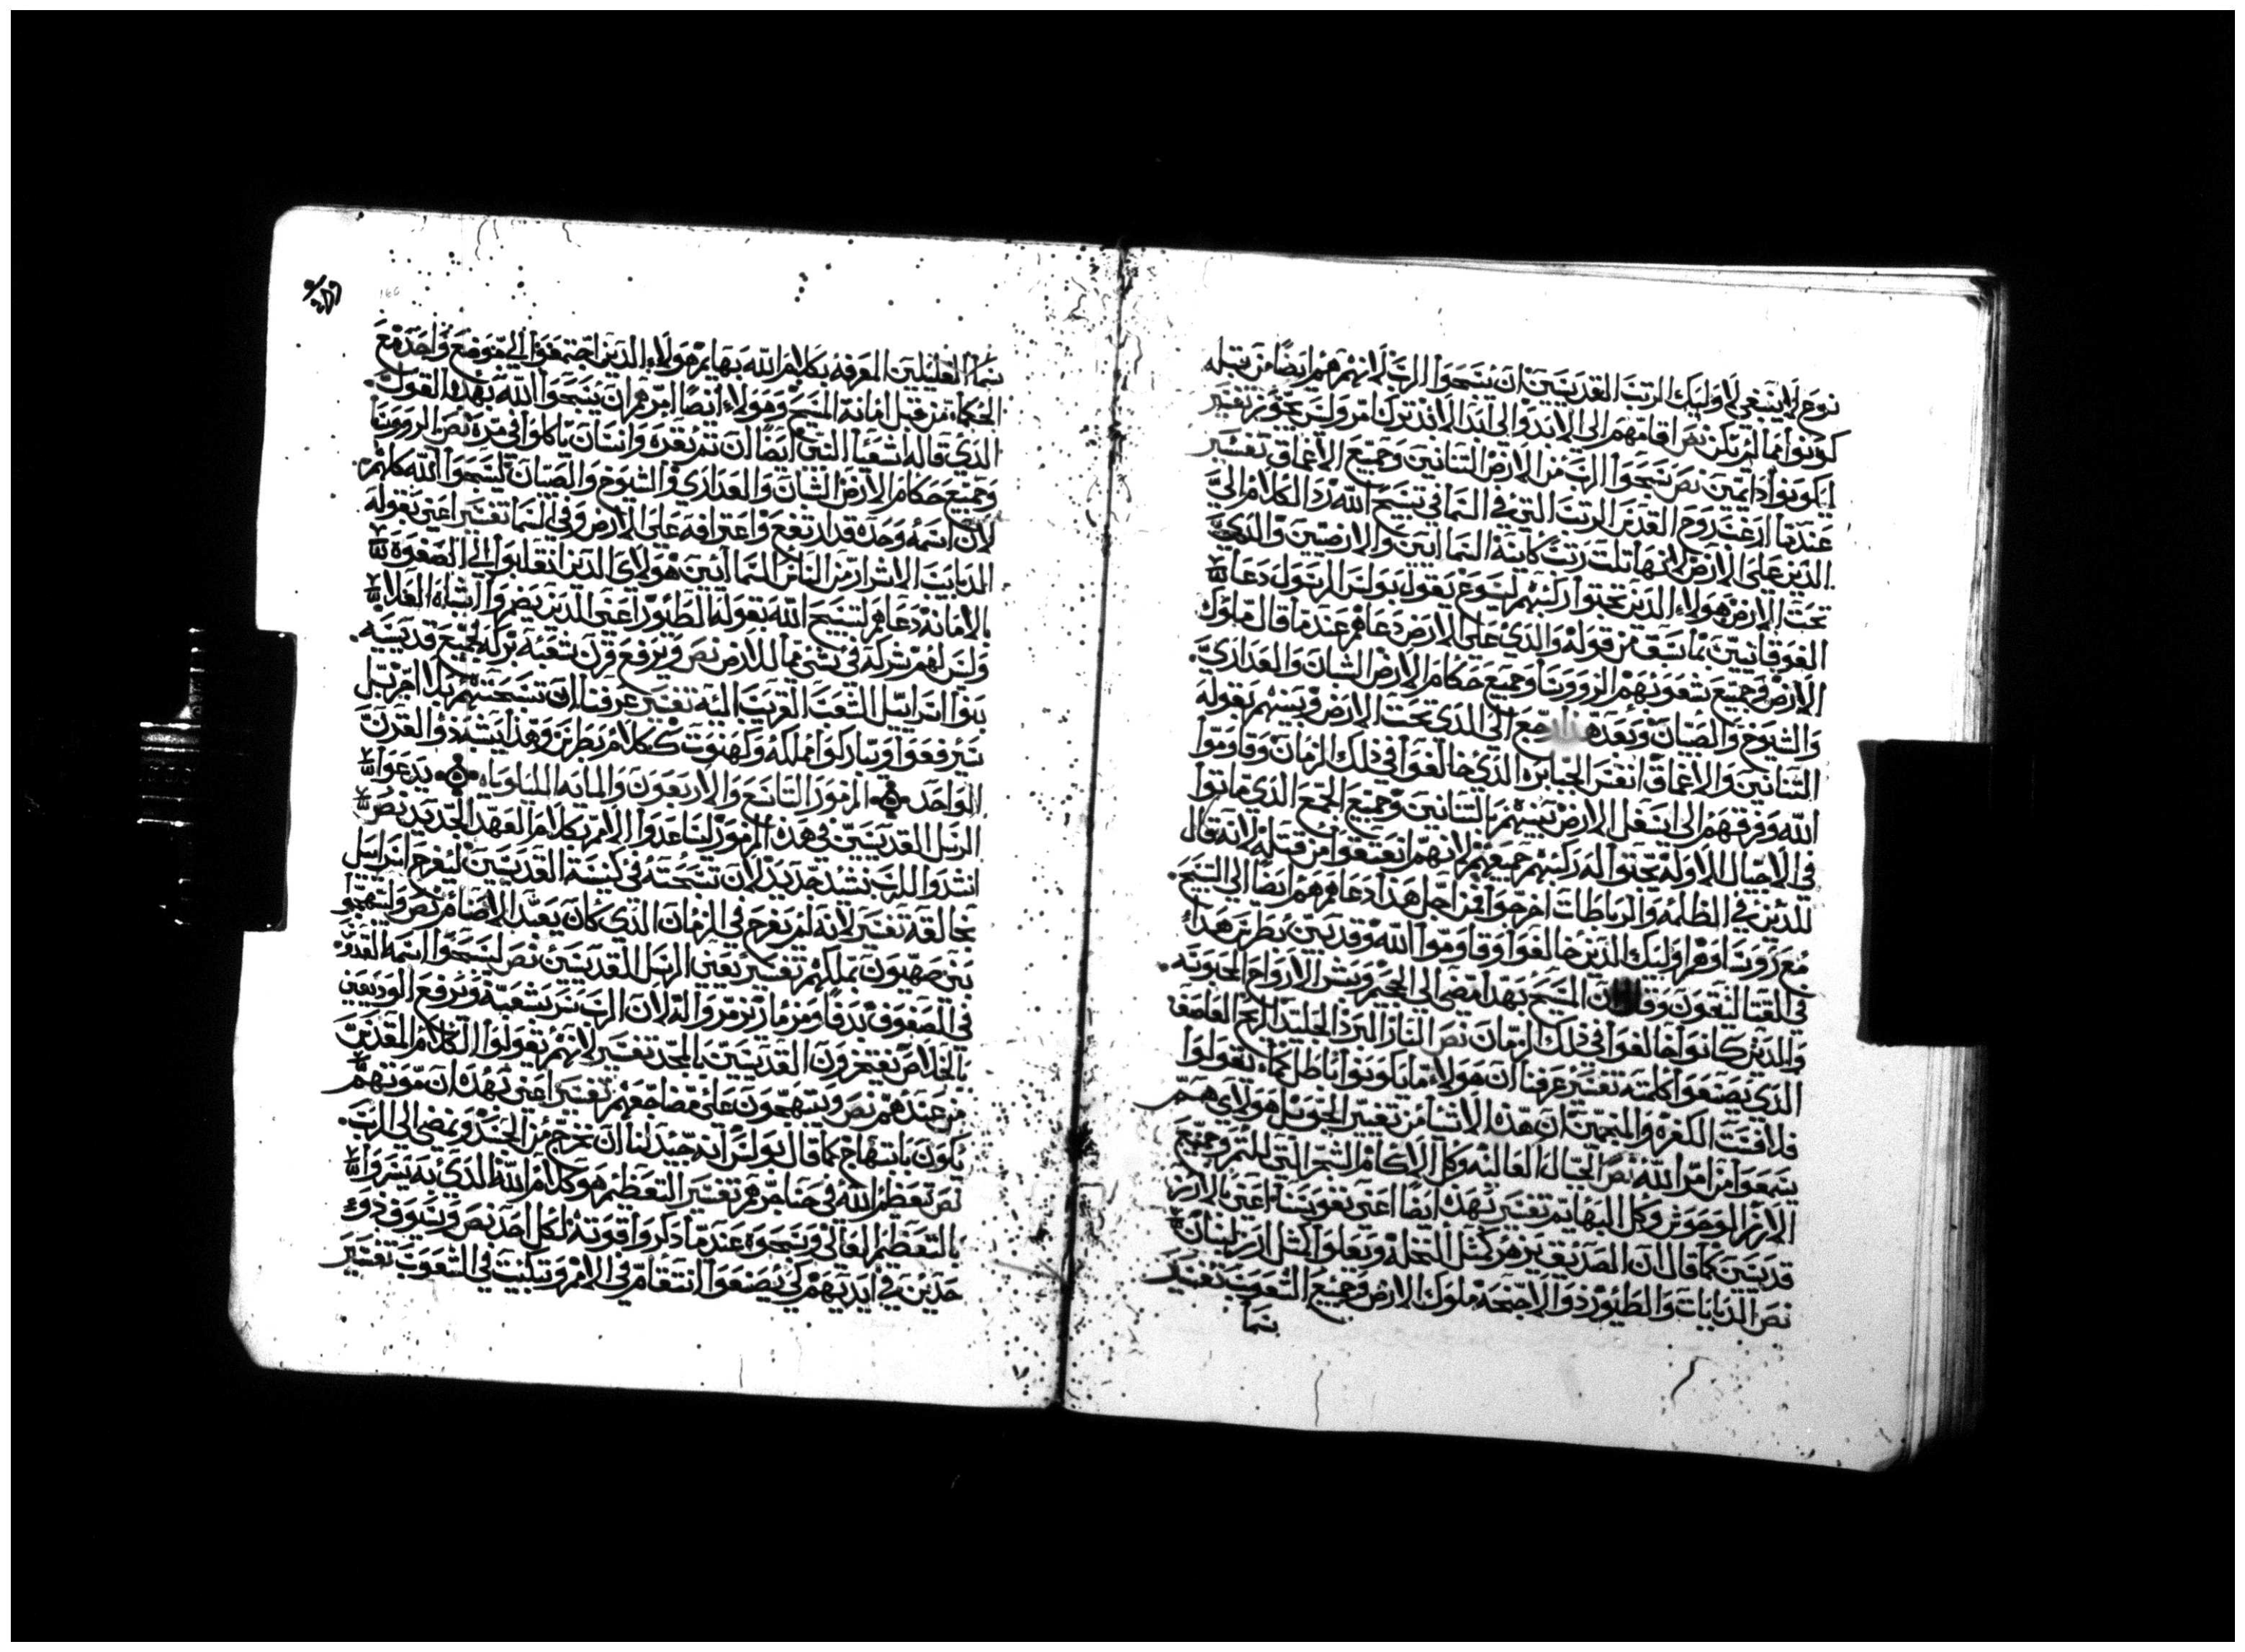 نوع لا ينبغي لاوليك الرتب القديسين ان يسبحوا الرب لانهم هم ايضا من قبله
كونوا مما لم تكن نص اقامهم الى الابد والى ابد الابد ترك امر وليس يجوز تفسير
ليكونوا دايمين نص سبحوا الرب من الارض التنانين وجميع الاعماق تفسير
عندما ارعد روح القدس الرتب التي في السما في تسبيح الله رد الكلام الي
الذين على الارض لانها تلت رتب كاينة السماايين والارضيين والذي
تحت الارض هولاء الذين تجثوا ركبهم ليسوع بقوله بولس الرسول دعا
الفوقانيين بما سبق من قوله والذي على الارض دعاهم عندما قال ملوك
الارض وجميع شعوبهم الرووسا وجميع حكام الارض الشبان والعذاري
والشيوخ والصبيان وبعد هذا رجع الى الذي تحت الارض ويسبهم بقوله
التنانين والاعماق انفس الجبابره الذي خالفوا في ذلك الزمان وقاوموا
الله وفرقهم الى اسفل الارض يسبهم بالتنانين وجميع الجمع الذي ماتوا
في الاجيال الاوله تجثوا له ركبهم جميعهم لانهم انعتقوا من قبله لانه قال
للذين في الظلمه والرباطات اخرجوا فمن اجل هذا دعاهم هم ايضا الى التسبيح
مع روسا وهم اوليك الذين خالفوا وقاوموا الله وقديس بطرس هذا
في القتاليقون وقال ان المسيح بهذا مضى الى الجحيم وبشر الارواح المحبوسه
والذين كانوا خالفوا في ذلك الزمان نص النار البرد الجليد الريح العاصف
الذي يصنعوا كلمته تفسير عرفنا ان هولاء ما يكونوا اباطل كما تقولوا
فلاسفت الكفره والمنجمين ان هذه الاشيا من تغيير الجو بل هولاي هم
يسمعوا من امر الله نص الجبال العاليه وكل الاكام الشجر التي للثمر وجميع
الارز الوحوش وكل البهايم تفسير بهذه ايضا اعني نفوسنا اعني بالارز
قديسين كما قال ان الصديق يزهر كمثل النخله ويعلوا كمثل ارز لبنان
نص الدبابات والطيور ذوا الاجنحه ملوك الارض وجميع الشعوب تفسير
بنما
بنما القليلين المعرفه بكلام الله بهايم هولاء الذين اجتمعوا الى موضع واحد مع
الحكماء من قبل امانة المسيح وهولاء ايضا امرهم ان يسبحوا الله بهذا القول
الذي قاله اشعيا النبي ايضا ان نمر بقره وانسان ياكلوا في مره نص الرووسا
وجميع حكام الارض الشبان والعذاري والشيوخ والصبيان ليسبحوا الله كلهم
لان اسمه وحده قد ارتفع واعترافه على الارض وفي السما تفسير اعني بقوله
الدبابات الاشرار من الناس السماايين هولاي الذين انتقلوا الى الصفوة
بالامانه دعاهم لتسبيح الله بقوله الطيور اعني للذين يضمروا اشياء الفلا
وليس لهم شركه في شي مما للارض نص ويرفع قرن شعبه بركه لجميع قديسيه
بنوا اسراييل للشعب القريب اليه تفسير عرفنا ان تسبحتهم بلا امر بل
تترفعوا وتباركوا مملكه وكهنوت ككلام بطرس وهذا ينشدوا القرن
الواحد المزمور التاسع والاربعون والمايه الليلوياه يدعوا
الرسل القديسين في هذه المزمور لنا عدوا الامم بكلام العهد الجديد نص
انشدوا للرب نشد جديد لان تسبحته في كنيسة القديسين ليفرح اسرايل
بخالقه تفسير لانه لم يفرح في الزمان الذي كان يعبد الاصنام نص ولتتهجوا
بني صهيون بملكهم تفسير يعني الرسل القديسين نص ليسبحوا اسمه القدوس
في الصفوف بدفا ومزمار ترمروا له لان الرب سر بشعبه ويرفع الوديعين
بالخلاص يفتخرون القديسين بالمجد تفسير لانهم يقولوا الكلام المقدس
من عندهم نص ويبتهجون على مضاجعهم تفسير اعني بهذا ان موتهم
يكون بابتهاج كما قال بولس انه جيد لنا ان نخرج من الجسد ونمضى الى الرب
نص تعظيم الله في حناجرهم تفسير التعظيم هو كلام الله الذي به بشروا
بالتعظيم العالي ويسبحوه عندما ذكروا قوته لكل احد نص وسيوف ذوى
حدين في ايديهم لكي يصنعوا انتقام في الامم وتبكيت في الشعوب تفسير